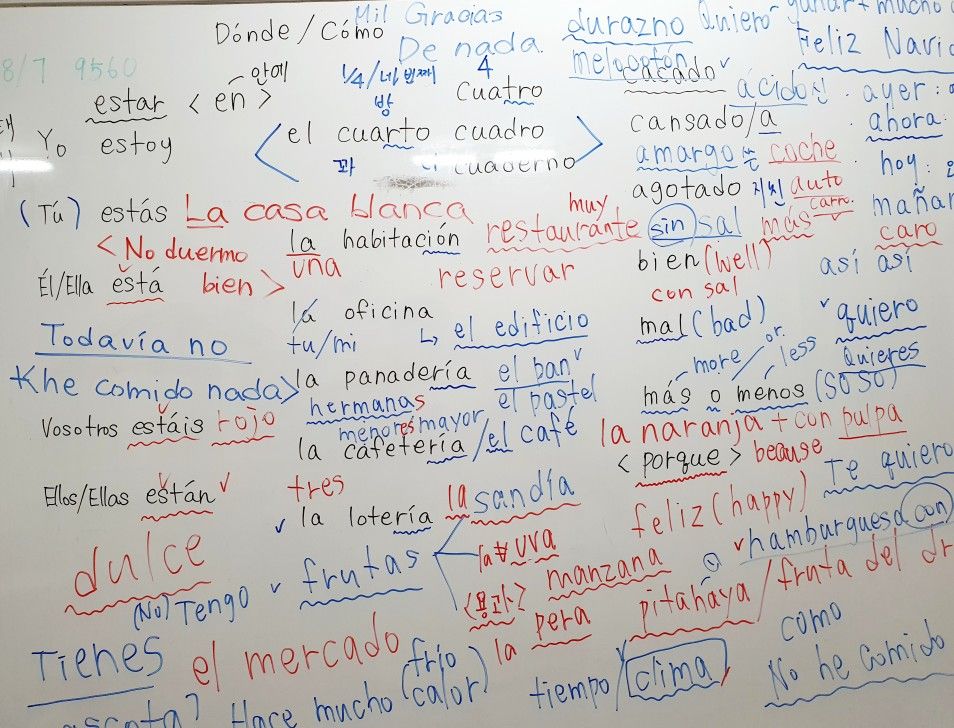 Mil Gracias
Dónde / Cómo
De nada
durazno Quiero ganar + mucho
melocotón
Feliz Navid
8/7 9560
estar < en > 안에
1/4 / 네 번째 4
방
cuatro
Yo estoy
< el cuarto cuadro
cuaderno >
cacado
ácido 신 . ayer:
cansado/a
. ahora:
amargo 쓴 coche
. hoy:
agotado 지친 auto
carro
mañan
(Tú) estás La casa blanca
muy
restaurante sin sal más
caro
< No duermo
la habitación
una
reservar
bien (well)
con sal
así así
Él/Ella está bien >
la oficina
tu/mi
↳ el edificio
mal (bad)
quiero
Quieres
Todavía no
more / or. less
más o menos (SO SO)
< he comido nada >
la panadería el ban
hermanas
el pastel
menores mayor
Vosotros estáis rojo
la cafetería / el café
la naranja + con pulpa
< porque > because
Te quiero
Ellos/Ellas están
tres
la sandía
la lotería
feliz (happy)
hamburguesa con
dulce
frutas
la uva
manzana
(No) Tengo
<용과>
la pera
pitahaya / fruta del dr
Tienes
el mercado
como
Hace mucho (frío
calor)
tiempo / clima
No he comido